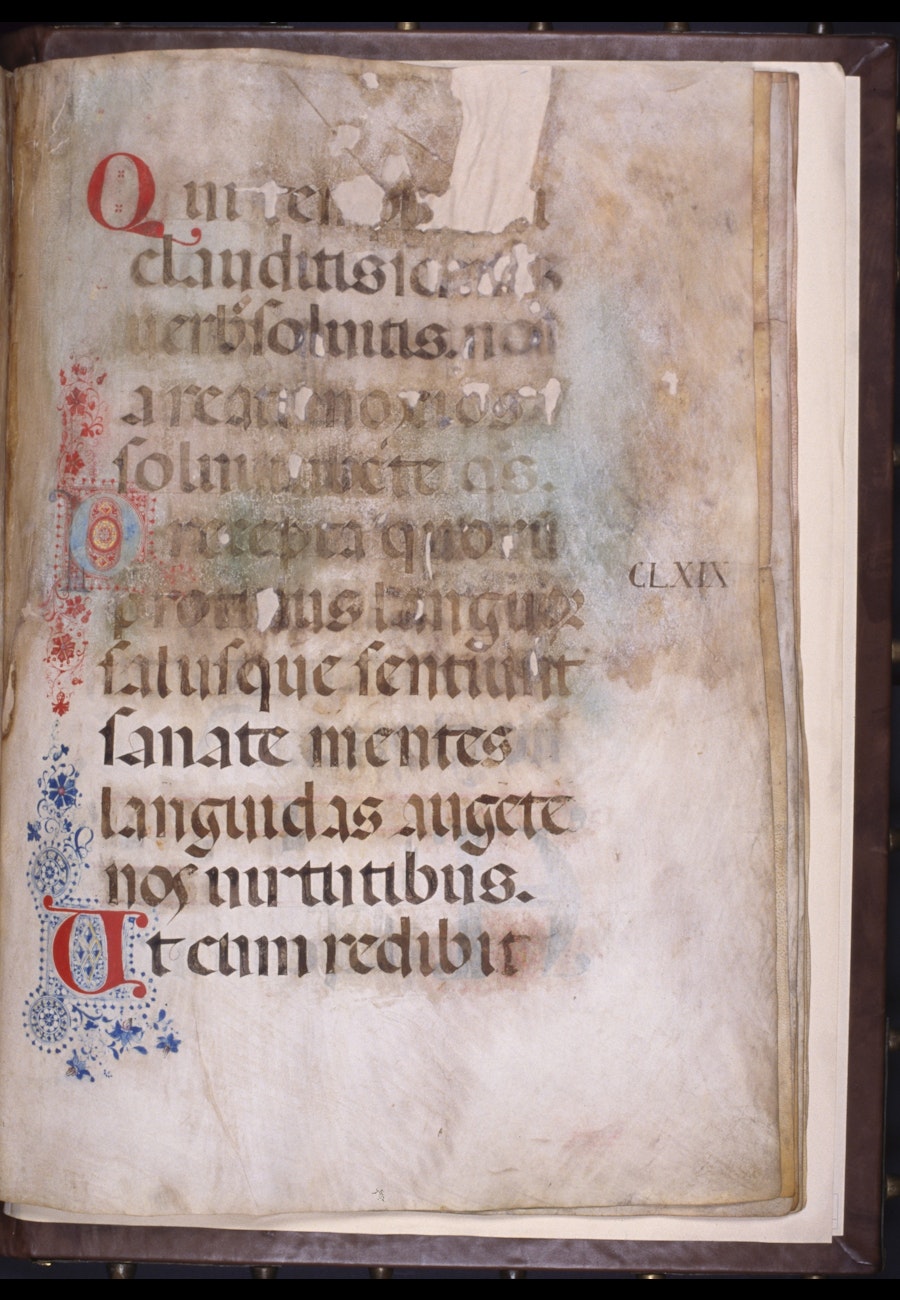 Qui
clauditis
uerb̾ soluitis. nos
a reatu noxios
solui iubete qs.
Precepta quorū
protinus languor
salusque sentiunt
sanate mentes
languidas augete
nos uirtutibus.
Ut cum redibit
CLXIX